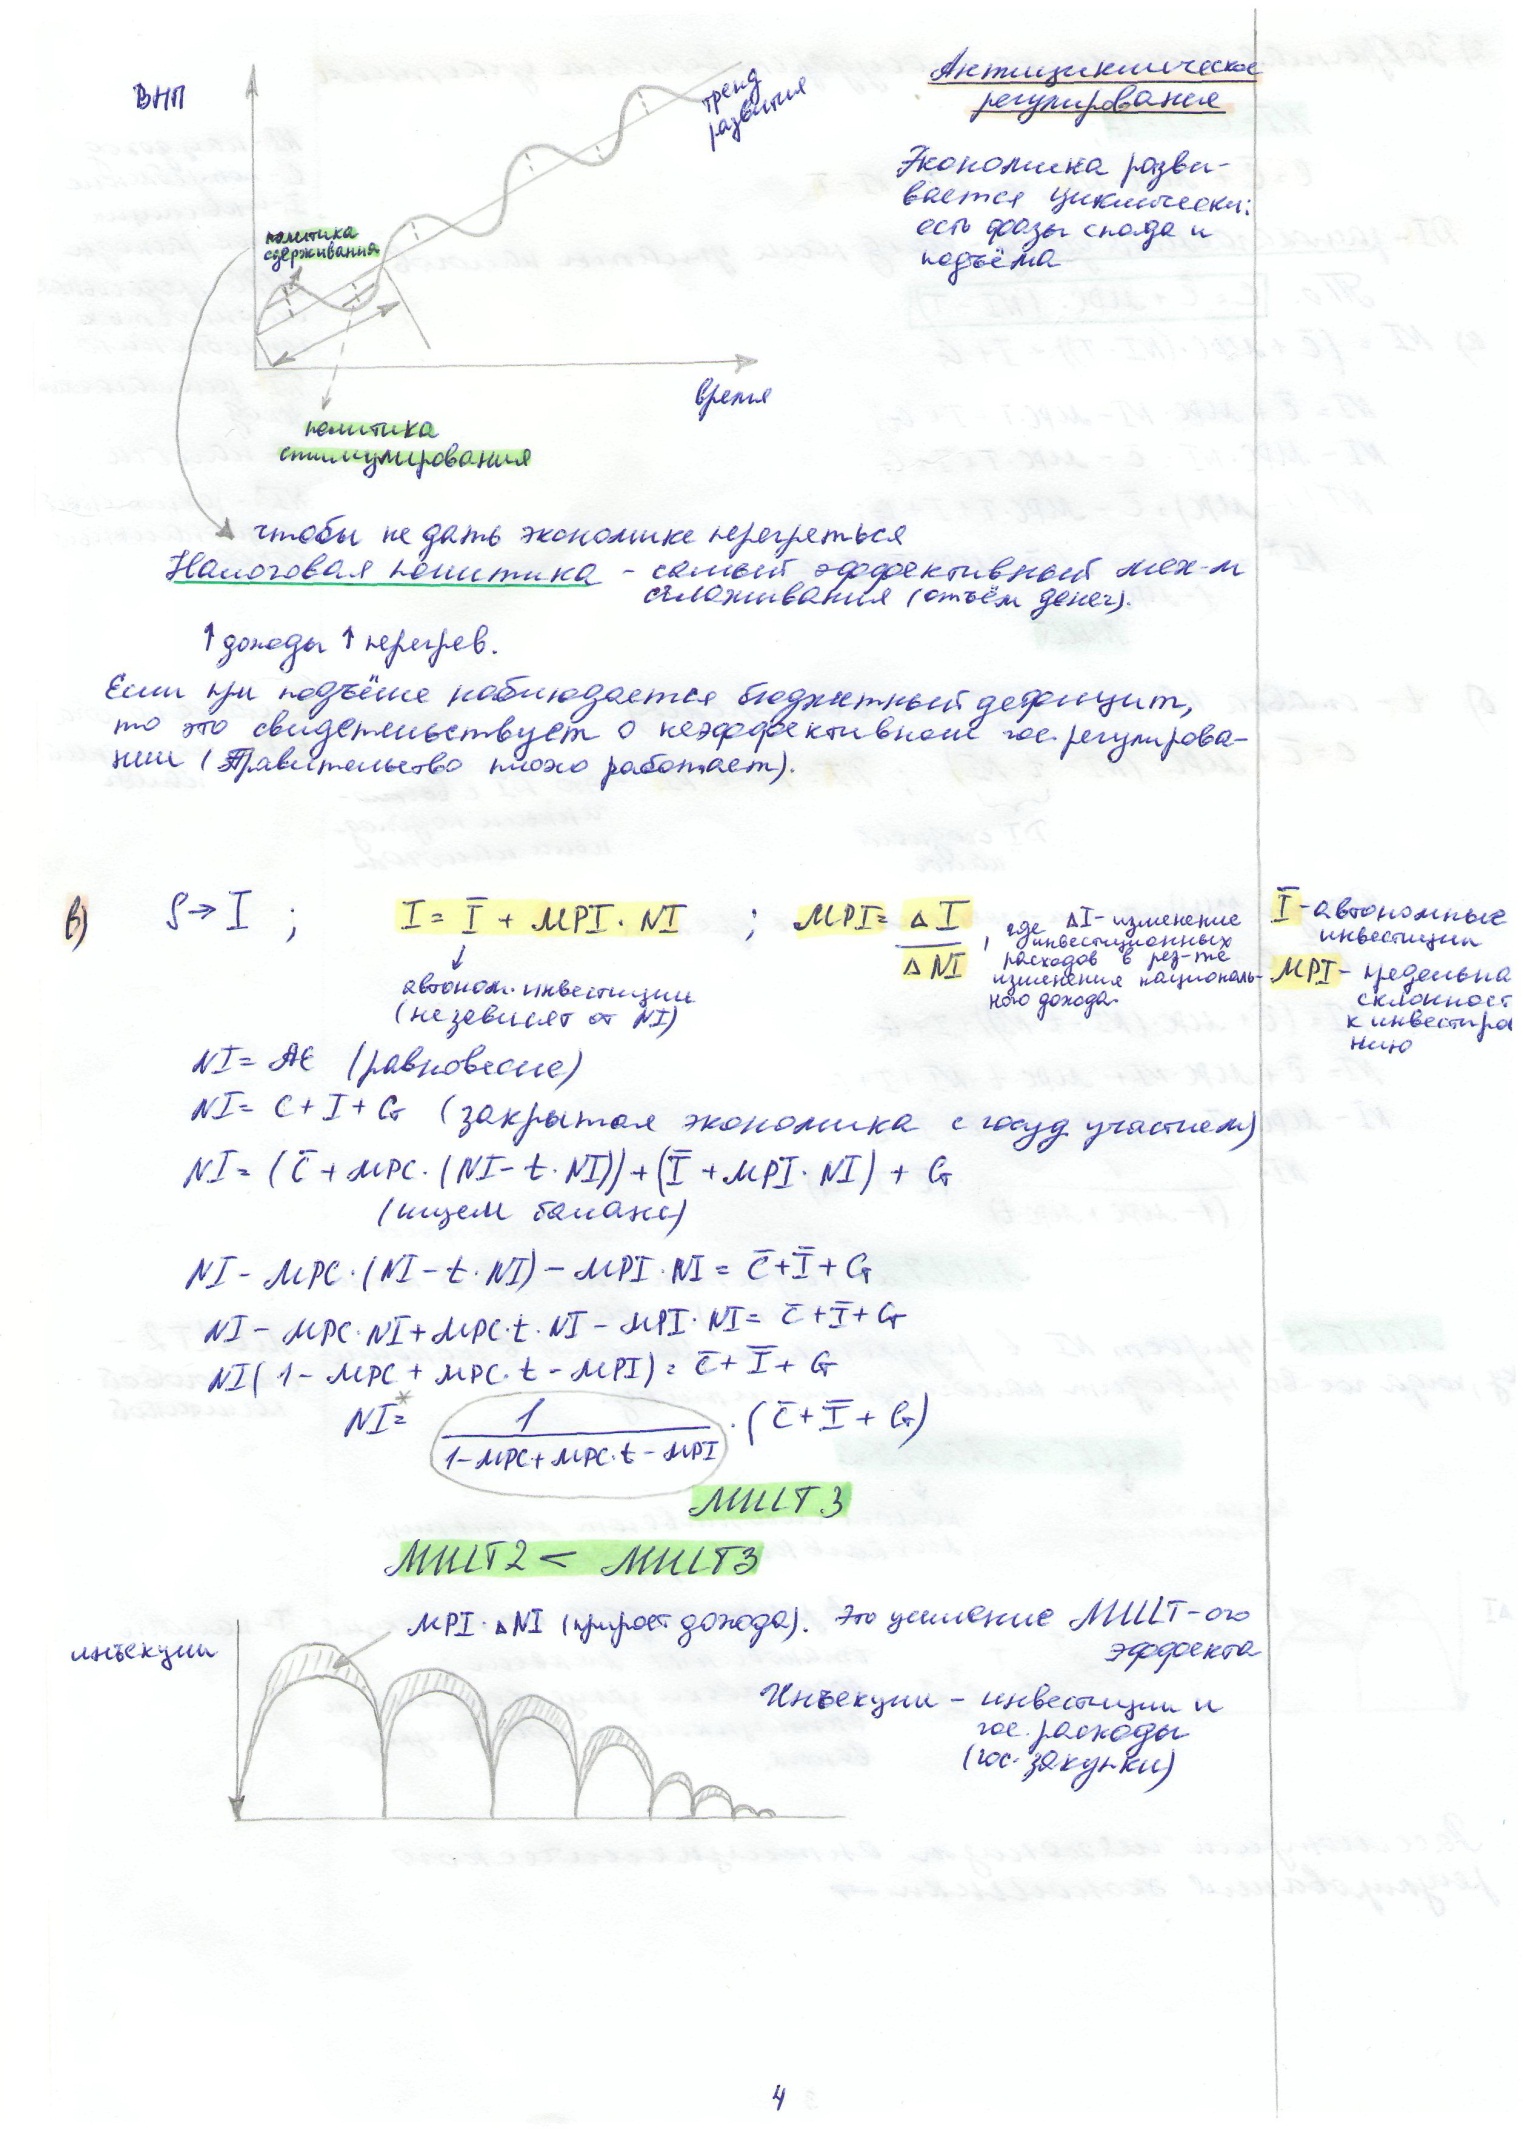 ВНП
тренд
развития
Антициклическое
регулирование
Экономика разви-
вается циклически:
есть фазы спада и
подъёма
политика
сдерживания
время
политика
стимулирования
чтобы не дать экономике перегреться
Налоговая политика - самый эффективный мех-м
сглаживания (отъём денег).
↑ доходы ↑ перегрев.
Если при подъёме наблюдается бюджетный дефицит,
то это свидетельствует о неэффективном гос. регулирова-
нии (Правительство плохо работает).
в) S → I ; I = Ī + MPI · NI ; MPI = ΔI / ΔNI , где ΔI - изменение
инвестиционных
расходов в рез-те
изменения националь-
ного дохода.
Ī - автономные
инвестиции
MPI - предельна
склонност
к инвестиро
нию
автоном. инвестиции
(не зависят от NI)
NI = AE (равновесие)
NI = C + I + G (закрытая экономика с госуд участием)
NI = (C̄ + MPC · (NI - t · NI)) + (Ī + MPI · NI) + G
(ищем баланс)
NI - MPC · (NI - t · NI) - MPI · NI = C̄ + Ī + G
NI - MPC · NI + MPC · t · NI - MPI · NI = C̄ + Ī + G
NI (1 - MPC + MPC · t - MPI) = C̄ + Ī + G
NI* = 1 / (1 - MPC + MPC · t - MPI) · (C̄ + Ī + G)
MULT.3
MULT2 < MULT3
MPI · ΔNI (прирост дохода). Это усиление MULT-ого
эффекта
инъекции
Инъекции - инвестиции и
гос. расходы
(гос. закупки)
4